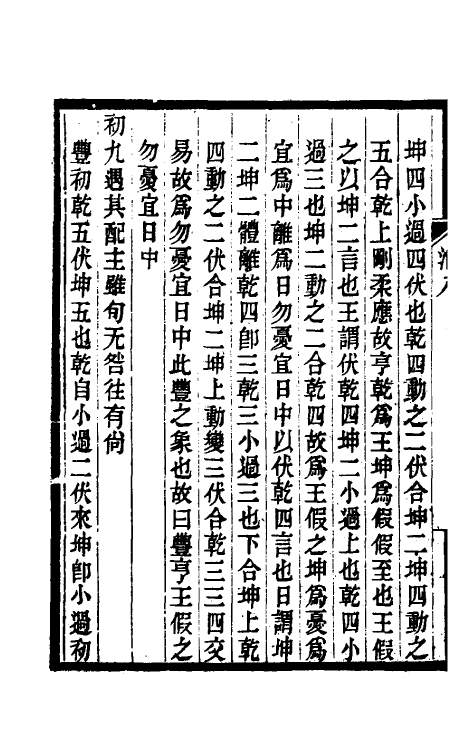 坤四小過四伏也乾四動之二伏合坤二坤四動之
五合乾上剛柔應故亨乾爲王坤爲假假至也王假
之以坤二言也王謂伏乾四坤二小過上也乾四小
過三也坤二動之二合乾四故爲王假之坤爲憂爲
宜爲中離爲日勿憂宜日中以伏乾四言也日謂坤
二坤二體離乾四卽三乾三小過三也下合坤上乾
四動之二伏合坤二坤上動變三伏合乾三三四交
易故爲勿憂宜日中此豐之象也故曰豐亨王假之
勿憂宜日中
初九遇其配主雖旬无咎往有尚
豐初乾五伏坤五也乾自小過二伏來坤卽小過初